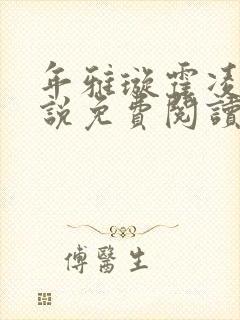 年雅璇霍凌
說免費閱讀
傅醫生